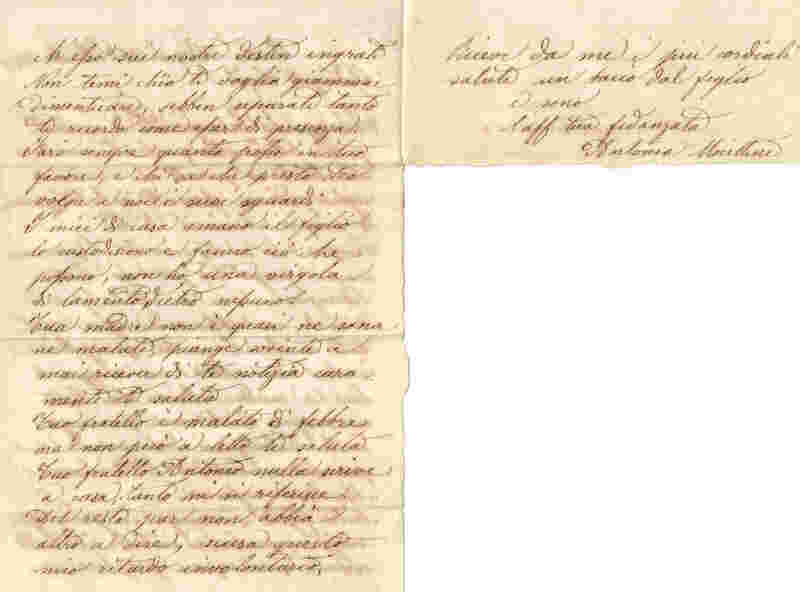 sui nostri destin ingrati
Non temi ch'io ti voglia giammai
dimenticare, sebben separati tanto
ti ricordo come a far di presenza.
Farò sempre quanto posso in tuo
favore, e presto Dio
volga a noi i suoi sguardi
I miei di casa amano il figlio
lo custodiscono e fanno ciò che
possono, non ho una virgola
di lamento dietro nessuno.
Tua madre non è quasi ne sana
ne malata, piange sovente e
mai ricever di te notizia cara
mente ti saluta
Tuo fratello è malato di febbre
ma non però a letto ti saluta
Tuo fratello Antonio nulla scrive
a casa, tanto mi si riferisce.
Del resto par non abbia
altro a dire, scusa questo
mio ritardo involontario,
Riceve da me i più cordiali
saluti un bacco dal figlio
e sono
l'aff tua fidanzata
Antonia